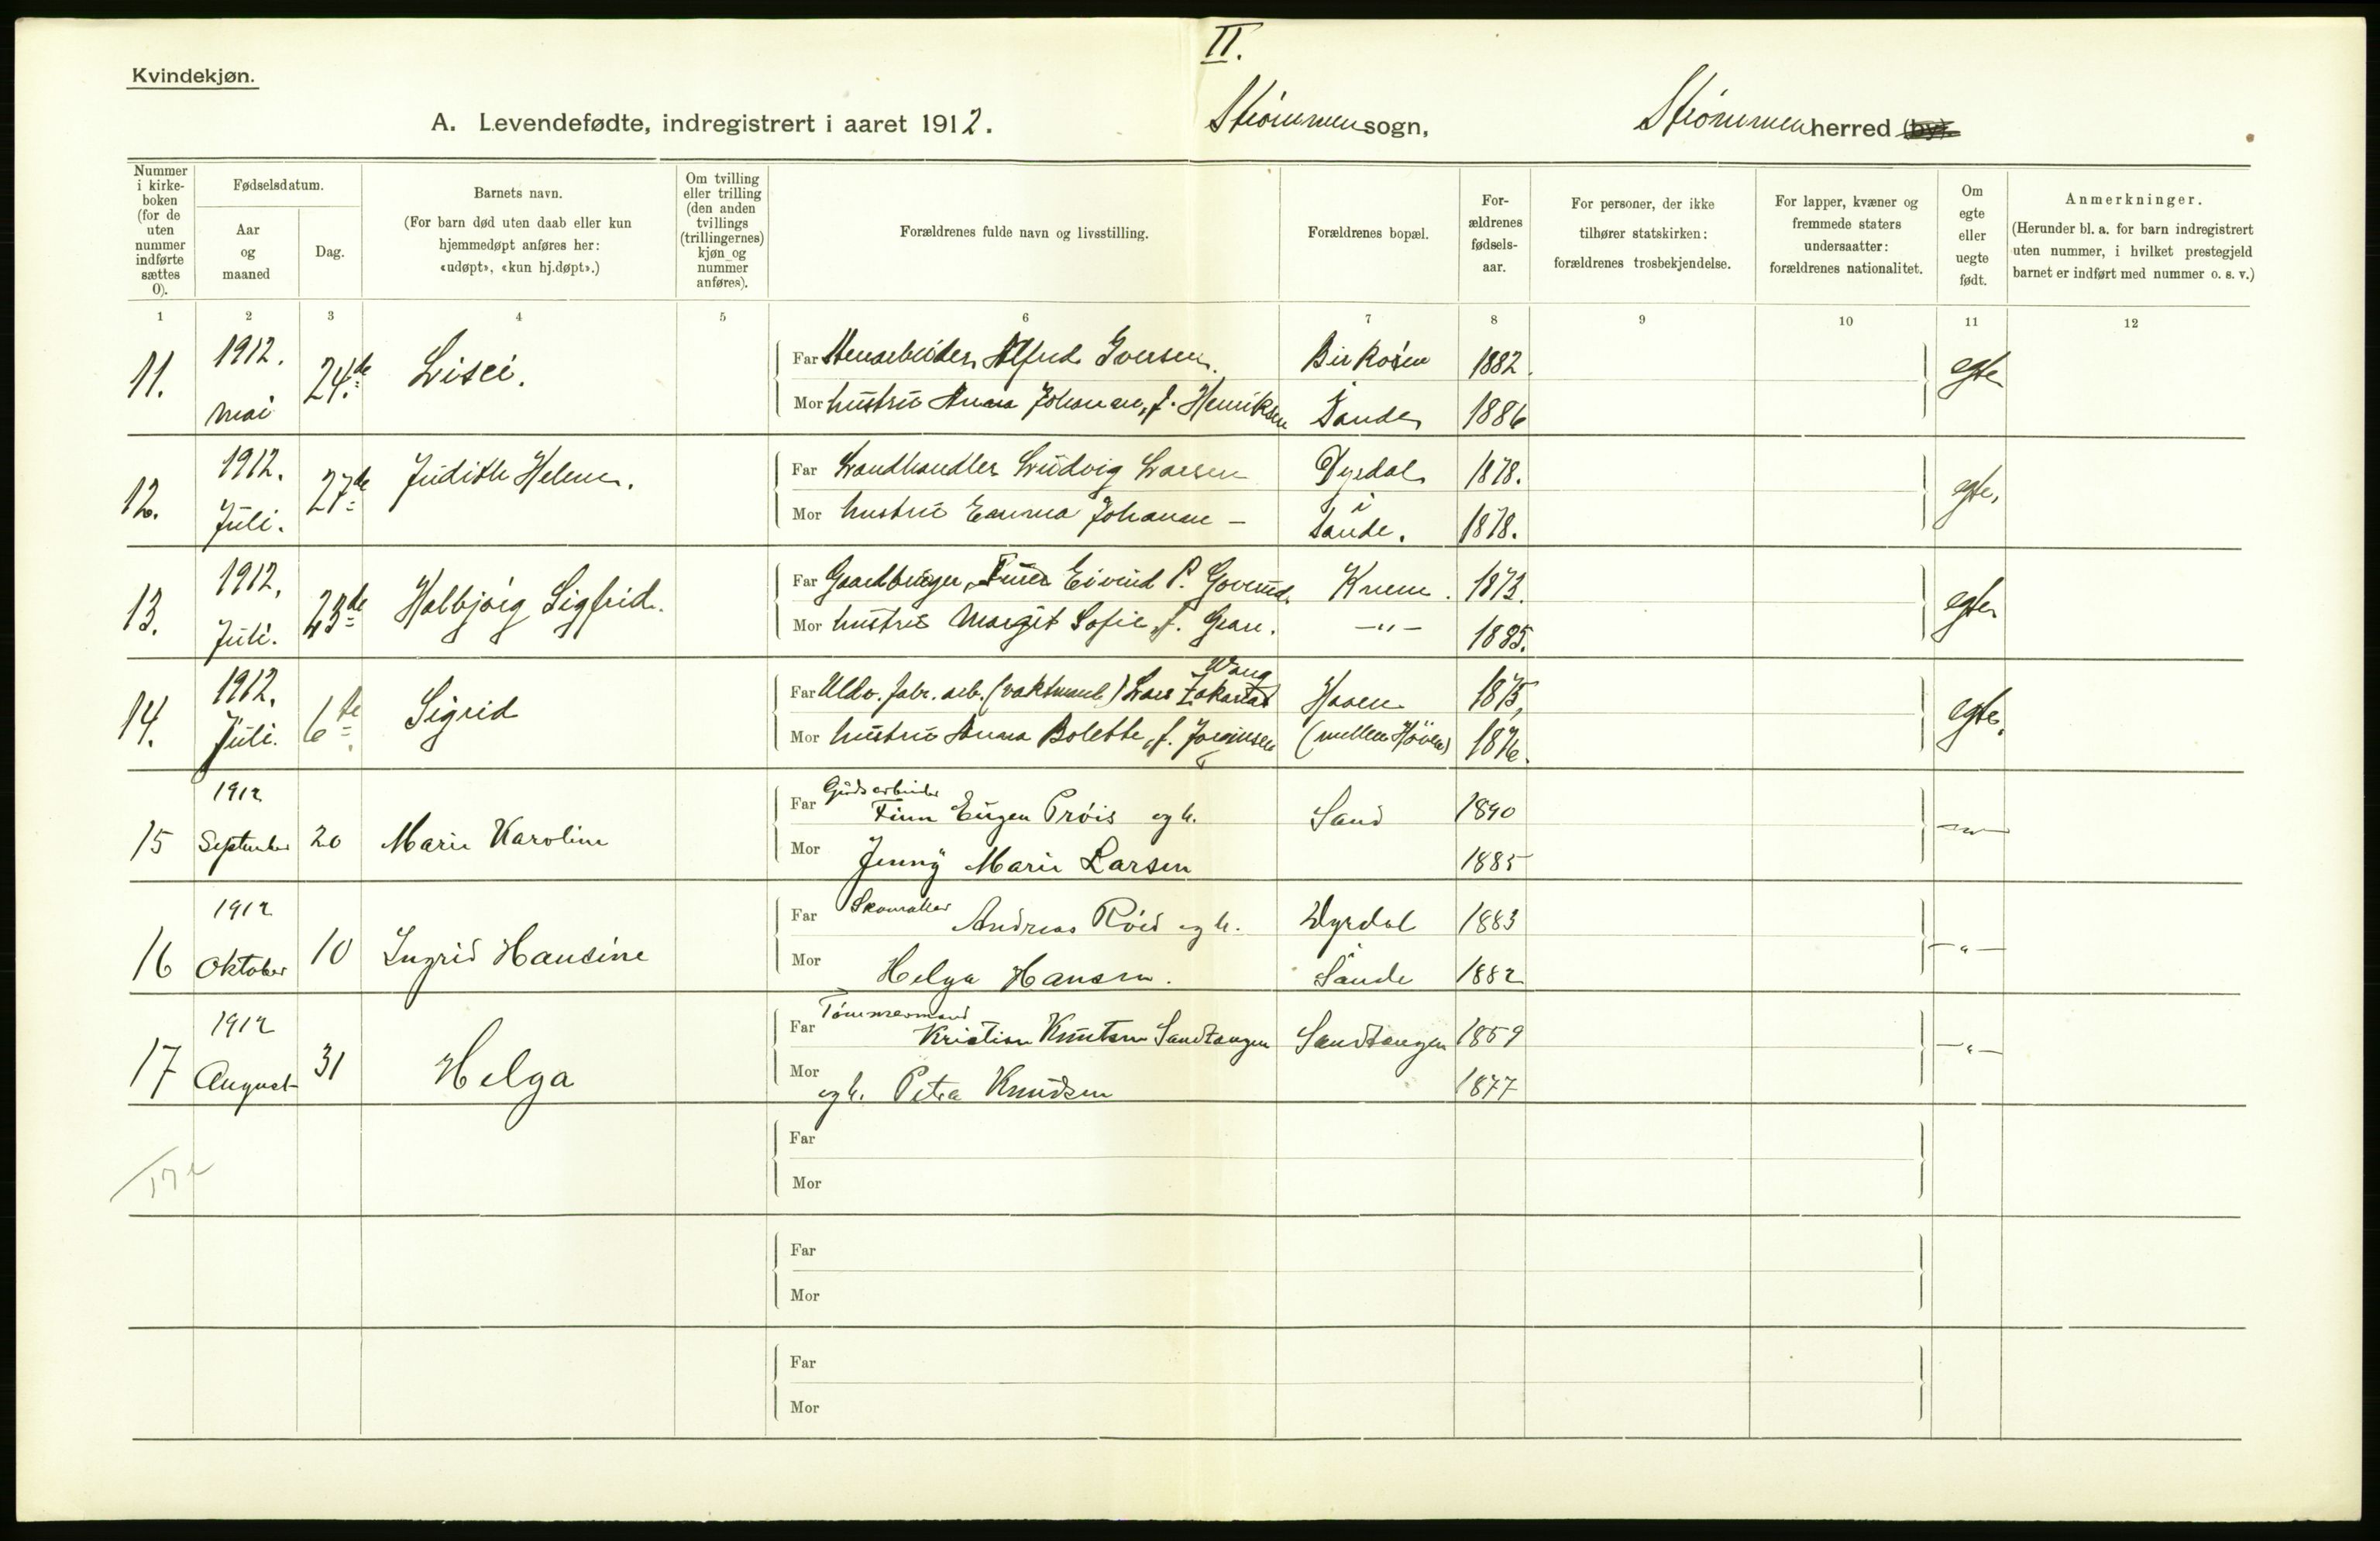 II.
Kvindekjøn.
A. Levendefødte, indregistrert i aaret 1912.
Strømmen sogn,
Strømmen herred (by).
Nummer
i kirke-
boken
(for de
uten
nummer
indførte
sættes
0).
Fødselsdatum.
Aar
og
maaned
Dag.
Barnets navn.
(For barn død uten daab eller kun
hjemmedøpt anføres her:
«udøpt», «kun hj.døpt».)
Om tvilling
eller trilling
(den anden
tvillings
(trillingernes)
kjøn og
nummer
anføres).
Forældrenes fulde navn og livsstilling.
Forældrenes bopæl.
For-
ældrenes
fødsels-
aar.
For personer, der ikke
tilhører statskirken:
forældrenes trosbekjendelse.
For lapper, kvæner og
fremmede staters
undersaatter:
forældrenes nationalitet.
Om
egte
eller
uegte
født.
Anmerkninger.
(Herunder bl. a. for barn indregistrert
uten nummer, i hvilket prestegjeld
barnet er indført med nummer o. s. v.)
1 2 3 4 5 6 7 8 9 10 11 12
11. 1912. mai 24de Lisei.
Far Stenarbeider Alfred Iversen. 1882.
Mor hustru Anna Johanne, f. Henriksen Sande 1886
egte
12. 1912. Juli. 27de Judith Helene.
Far Landhandler Ludvig Larsen Dyrdal 1878.
Mor hustru Emma Johanne — i Sande. 1878.
egte,
13. 1912, Juli. 23de Halbjørg Sigfrid.
Far Gaardbruger, Eivind P. Knem. 1873.
Mor hustru Margit Sofie, f. —"— 1885.
egte
14. 1912, Juli. 6te Sigrid
Far Uldv. fabr. arb. (vaktmand) Lars Zakarias Wang Haven 1875,
Mor hustru Anna Bolette, f. Jørginsen (mellem Höven) 1876.
egte,
15 1912 September 20 Marie Karoline
Far Godsarbeider Finn Eugen Prøis og h. Sand 1890
Mor Jenny Marie Larsen 1885
—"—
16 1912 Oktober 10 Ingrid Hansine
Far Skomaker Andreas Røed og h. Dyrdal 1883
Mor Helga Hansen. Sande 1882
—"—
17 1912 August 31 Helga
Far Tømmermand Kristian Knutsen Sandtangen Sandtangen 1859
Mor og h. Petra Knudsen 1877
—"—
Far
Mor
Far
Mor
Far
Mor